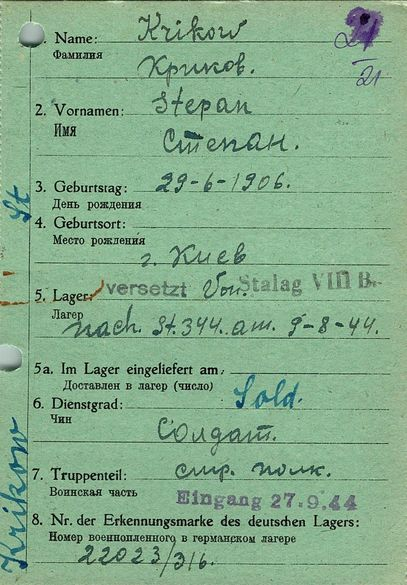 Name: Krikow
Фамилия
Криков.
2. Vornamen: Stepan
Имя
Степан.
3. Geburtstag: 29-6-1906.
День рождения
4. Geburtsort:
Место рождения
г. Киев
5. Lager: versetzt Von. Stalag VIII B.
Лагер
nach. St. 344. am. 9-8-44.
5a. Im Lager eingeliefert am
Доставлен в лагер (число)
6. Dienstgrad: Sold.
Чин
Солдат.
7. Truppenteil: стр. полк.
Воинская часть
Eingang 27.9.44
8. Nr. der Erkennungsmarke des deutschen Lagers:
Номер военнопленного в германском лагере
22023/316.
21
St
Krikow